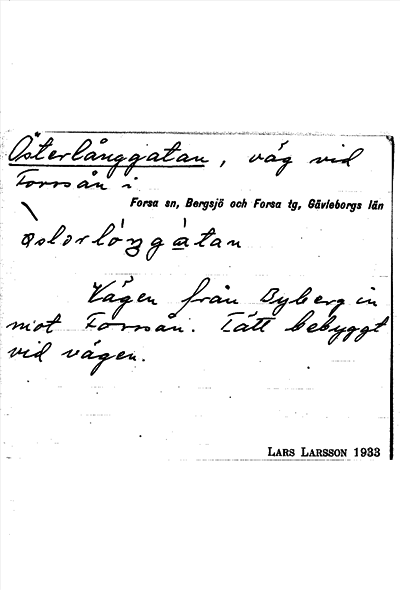 Österlånggatan, väg vid
Forsån i
Forsa sn, Bergsjö och Forsa tg, Gävleborgs län
Vägen från Byberg in
mot Forsån. Tätt bebyggt
vid vägen.
LARS LARSSON 1933